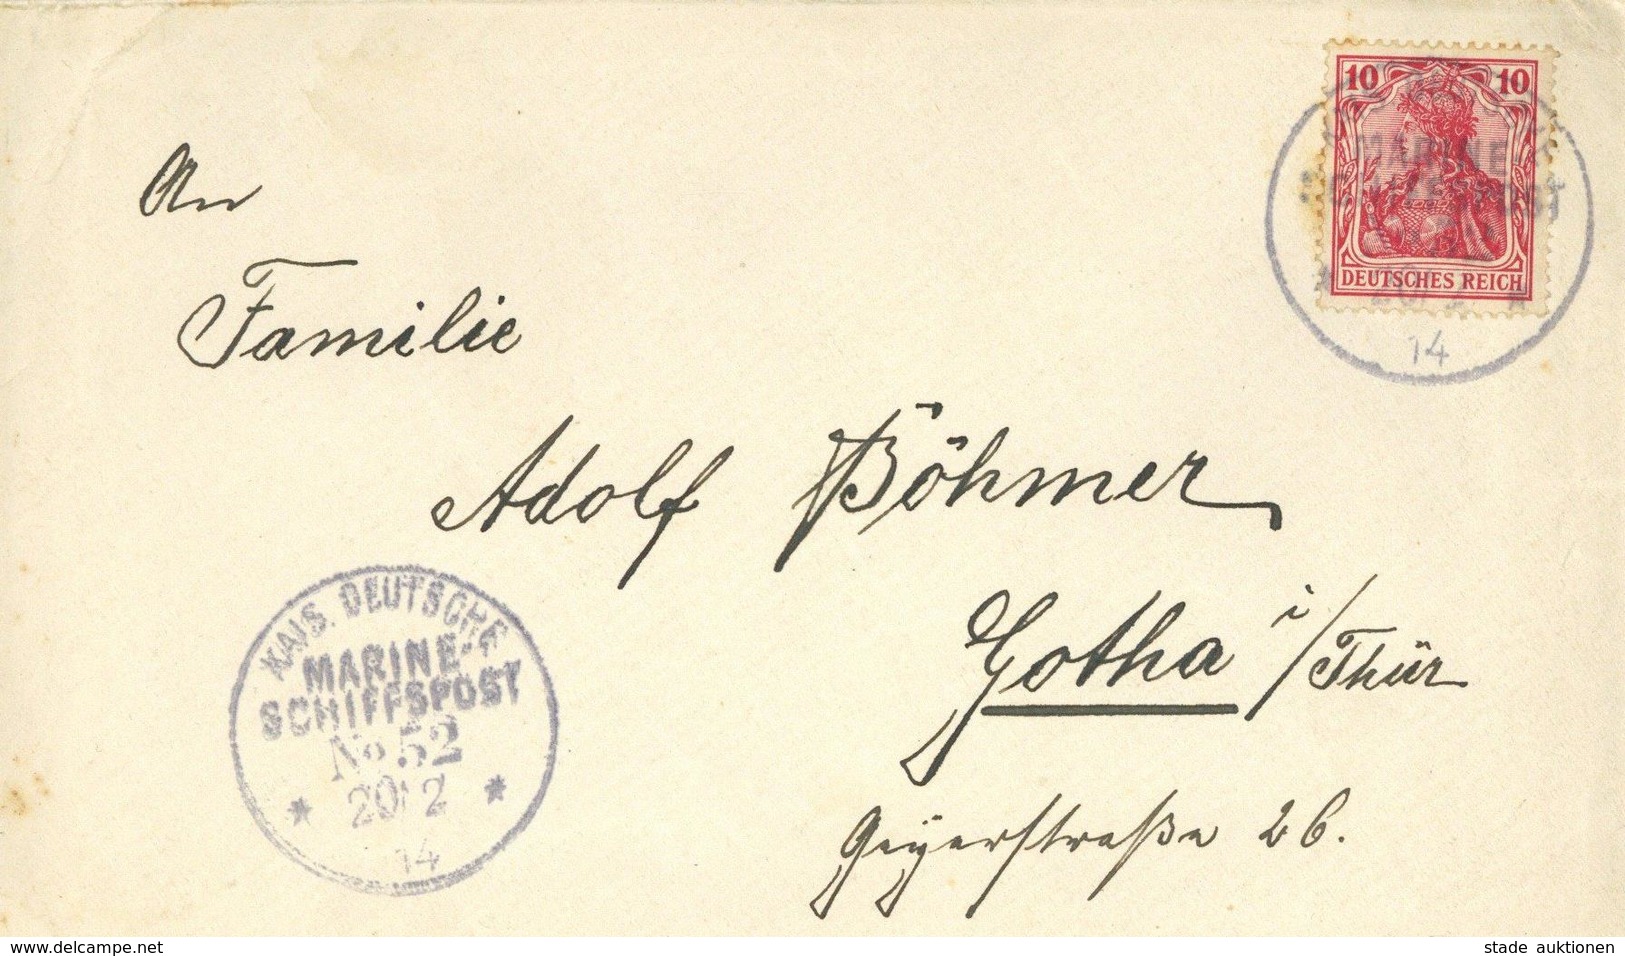 10 10
MARINE
SCHIFFSPOST
DEUTSCHES REICH
20/2
14
An
Familie
Adolf Böhmer
Gotha i/Thür
Geyerstraße 26.
KAIS. DEUTSCHE
MARINE-
SCHIFFSPOST
No 52
* 20/2 *
14
www.delcampe.net
stade auktionen